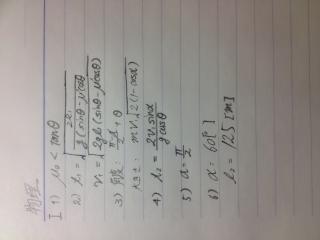 物理
I 1) μ₀ < tanθ
2) t₁ = √(2l₁ / g(sinθ-μ'cosθ))
v₁ = √(2gl₁(sinθ-μ'cosθ))
3) 角度: π-α/2 + θ
大きさ: mv₁√(2(1-cosα))
4) t₂ = 2v₁sinα / gcosθ
5) α = π/2
6) α = 60[°]
l₂ = 125 [m]